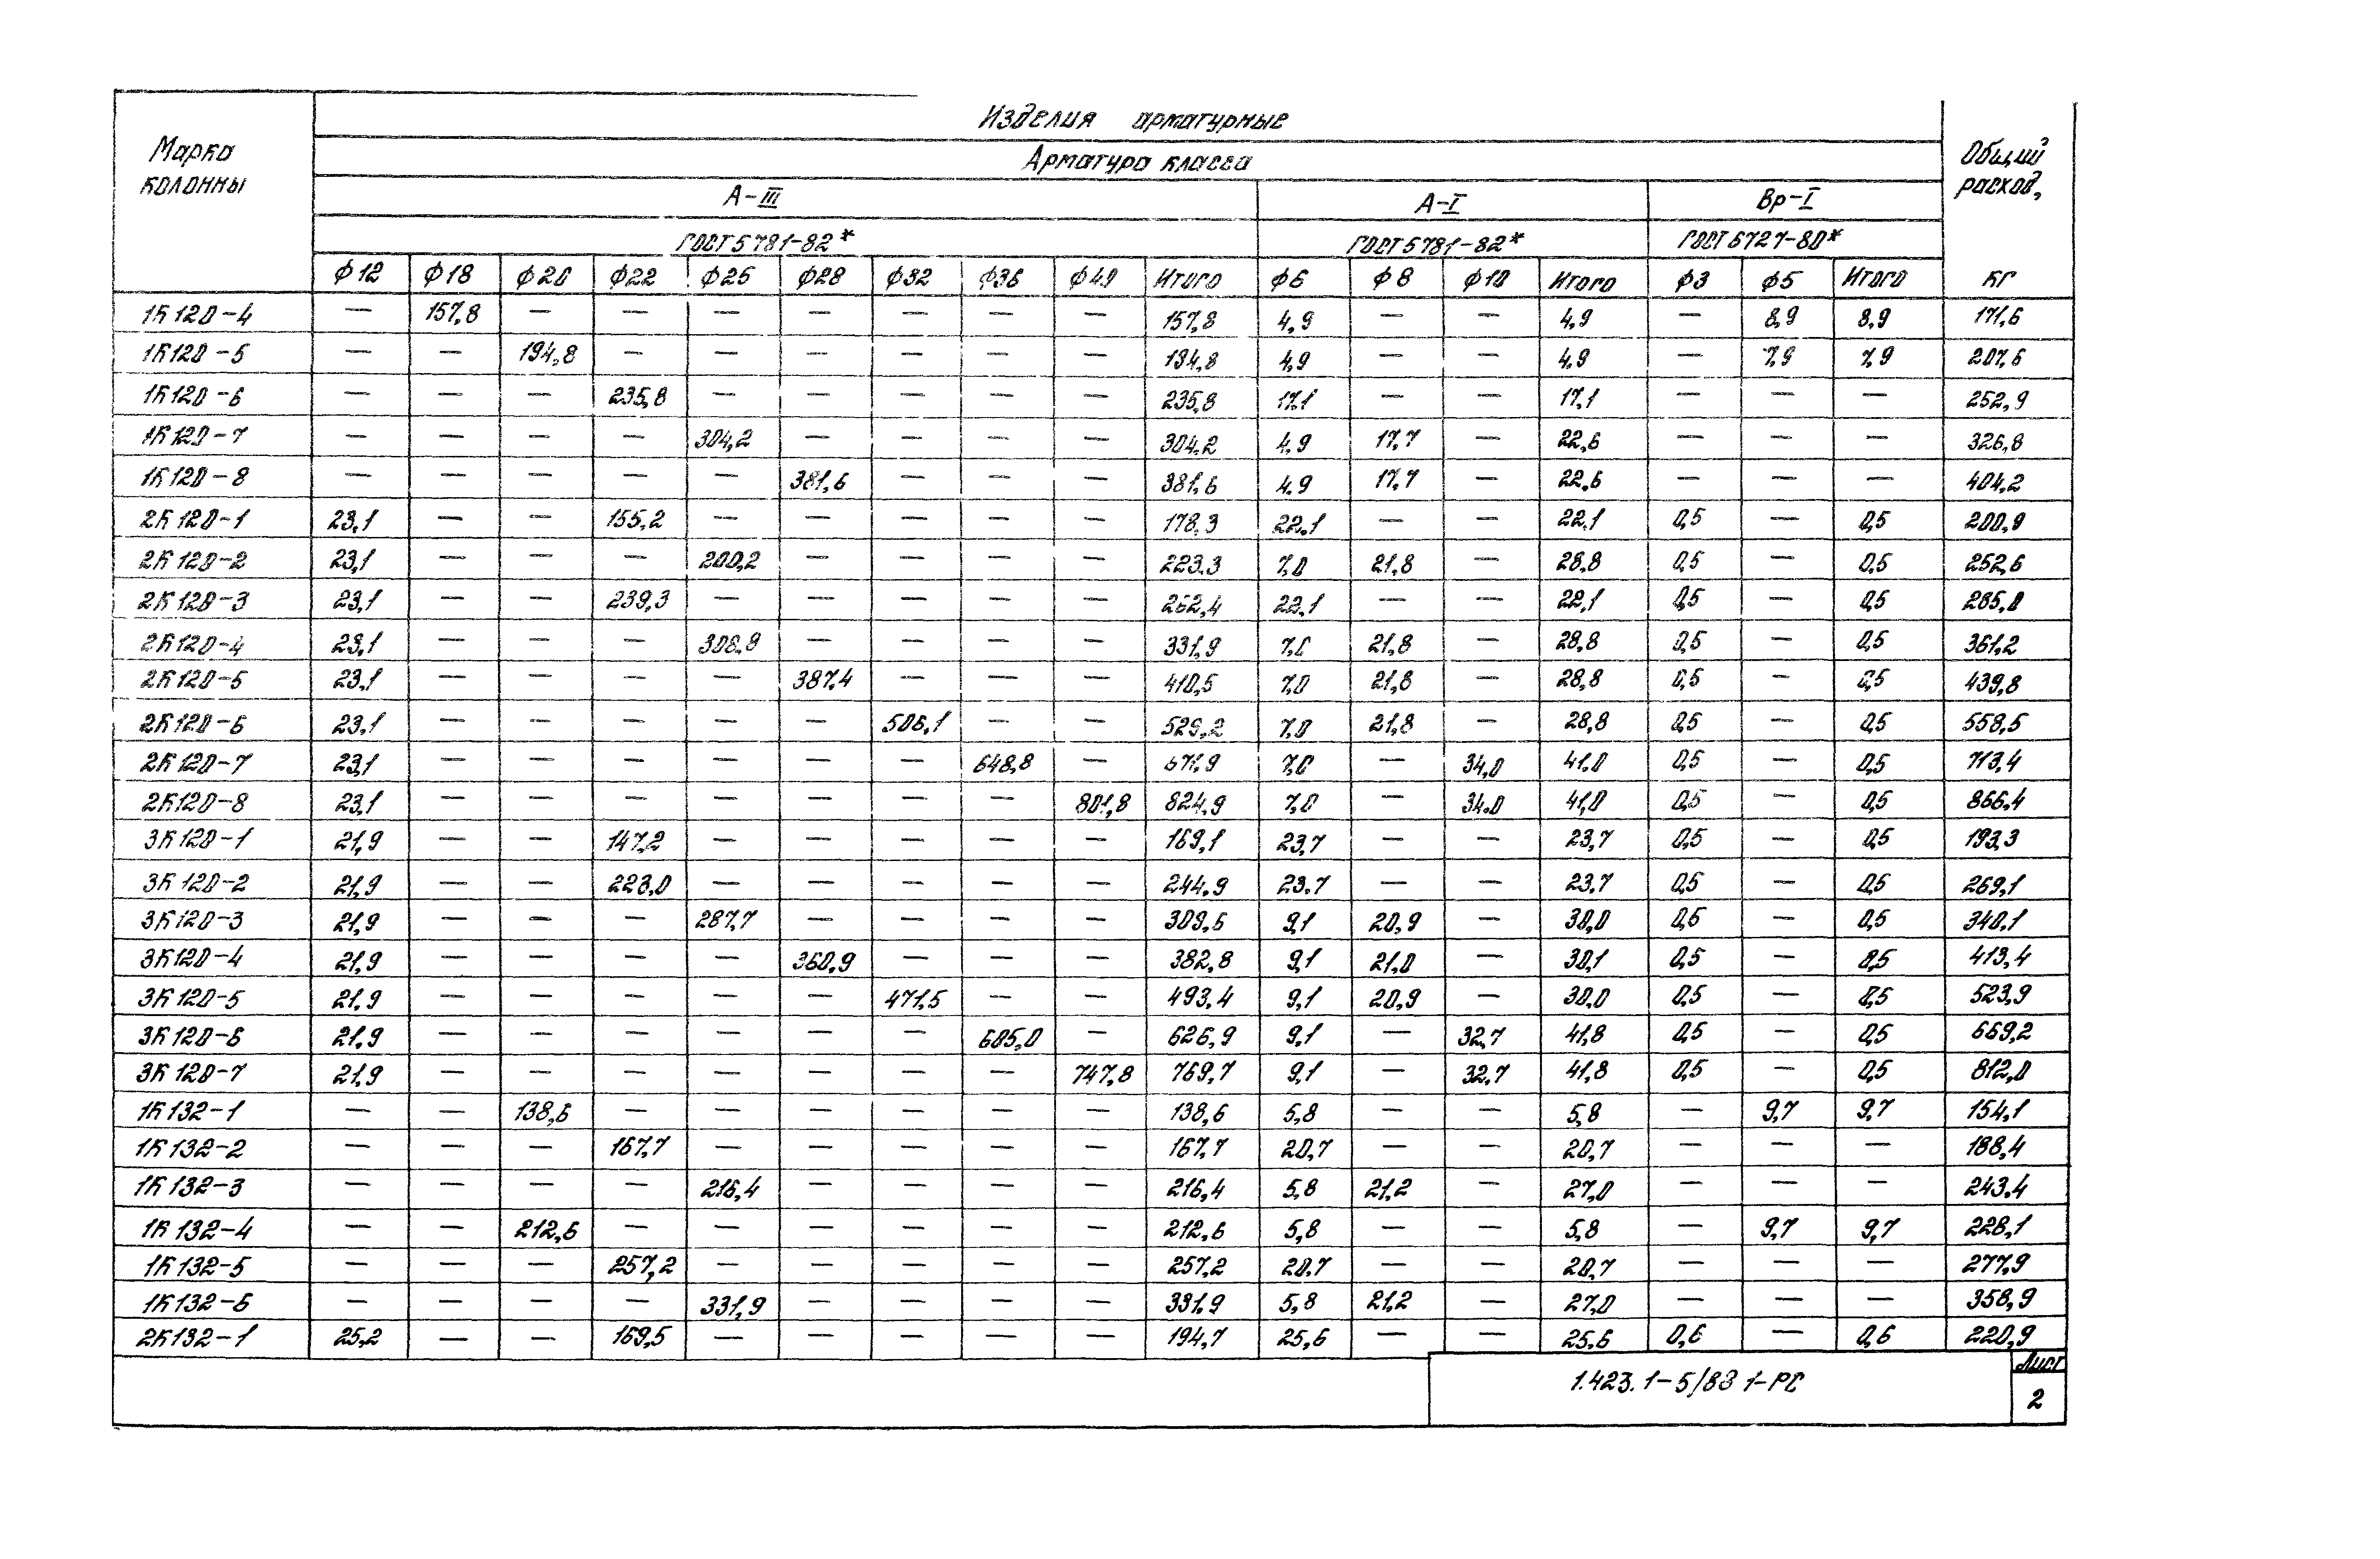 Изделия арматурные
Марка колонны
Арматура класса
Общий расход, кг
А-III
А-I
Вр-I
ГОСТ 5781-82*
ГОСТ 5781-82*
ГОСТ 6727-80*
ф12 ф18 ф20 ф22 ф25 ф28 ф32 ф36 ф40 Итого ф6 ф8 ф10 Итого ф3 ф5 Итого
1К120-4 — 157,8 — — — — — — — 157,8 4,9 — — 4,9 — 8,9 8,9 171,6
1К120-5 — — 194,8 — — — — — — 194,8 4,9 — — 4,9 — 7,9 7,9 207,6
1К120-6 — — — 235,8 — — — — — 235,8 17,1 — — 17,1 — — — 252,9
1К120-7 — — — — 304,2 — — — — 304,2 4,9 17,7 — 22,6 — — — 326,8
1К120-8 — — — — — 381,6 — — — 381,6 4,9 17,7 — 22,6 — — — 404,2
2К120-1 23,1 — — 155,2 — — — — — 178,3 22,1 — — 22,1 0,5 — 0,5 200,9
2К120-2 23,1 — — — 200,2 — — — — 223,3 7,0 21,8 — 28,8 0,5 — 0,5 252,6
2К120-3 23,1 — — 239,3 — — — — — 262,4 22,1 — — 22,1 0,5 — 0,5 285,0
2К120-4 23,1 — — — 308,8 — — — — 331,9 7,0 21,8 — 28,8 0,5 — 0,5 361,2
2К120-5 23,1 — — — — 387,4 — — — 410,5 7,0 21,8 — 28,8 0,5 — 0,5 439,8
2К120-6 23,1 — — — — — 506,1 — — 529,2 7,0 21,8 — 28,8 0,5 — 0,5 558,5
2К120-7 23,1 — — — — — — 648,8 — 671,9 7,0 — 34,0 41,0 0,5 — 0,5 713,4
2К120-8 23,1 — — — — — — — 801,8 824,9 7,0 — 34,0 41,0 0,5 — 0,5 866,4
3К120-1 21,9 — — 147,2 — — — — — 169,1 23,7 — — 23,7 0,5 — 0,5 193,3
3К120-2 21,9 — — 223,0 — — — — — 244,9 23,7 — — 23,7 0,5 — 0,5 269,1
3К120-3 21,9 — — — 287,7 — — — — 309,6 9,1 20,9 — 30,0 0,5 — 0,5 340,1
3К120-4 21,9 — — — — 360,9 — — — 382,8 9,1 21,0 — 30,1 0,5 — 0,5 413,4
3К120-5 21,9 — — — — — 471,5 — — 493,4 9,1 20,9 — 30,0 0,5 — 0,5 523,9
3К120-6 21,9 — — — — — — 605,0 — 626,9 9,1 — 32,7 41,8 0,5 — 0,5 669,2
3К120-7 21,9 — — — — — — — 747,8 769,7 9,1 — 32,7 41,8 0,5 — 0,5 812,0
1К132-1 — — 138,6 — — — — — — 138,6 5,8 — — 5,8 — 9,7 9,7 154,1
1К132-2 — — — 167,7 — — — — — 167,7 20,7 — — 20,7 — — — 188,4
1К132-3 — — — — 216,4 — — — — 216,4 5,8 21,2 — 27,0 — — — 243,4
1К132-4 — — 212,6 — — — — — — 212,6 5,8 — — 5,8 — 9,7 9,7 228,1
1К132-5 — — — 257,2 — — — — — 257,2 20,7 — — 20,7 — — — 277,9
1К132-6 — — — — 331,9 — — — — 331,9 5,8 21,2 — 27,0 — — — 358,9
2К132-1 25,2 — — 169,5 — — — — — 194,7 25,6 — — 25,6 0,6 — 0,6 220,9
1.423.1-5/88 1-РС
Лист
2